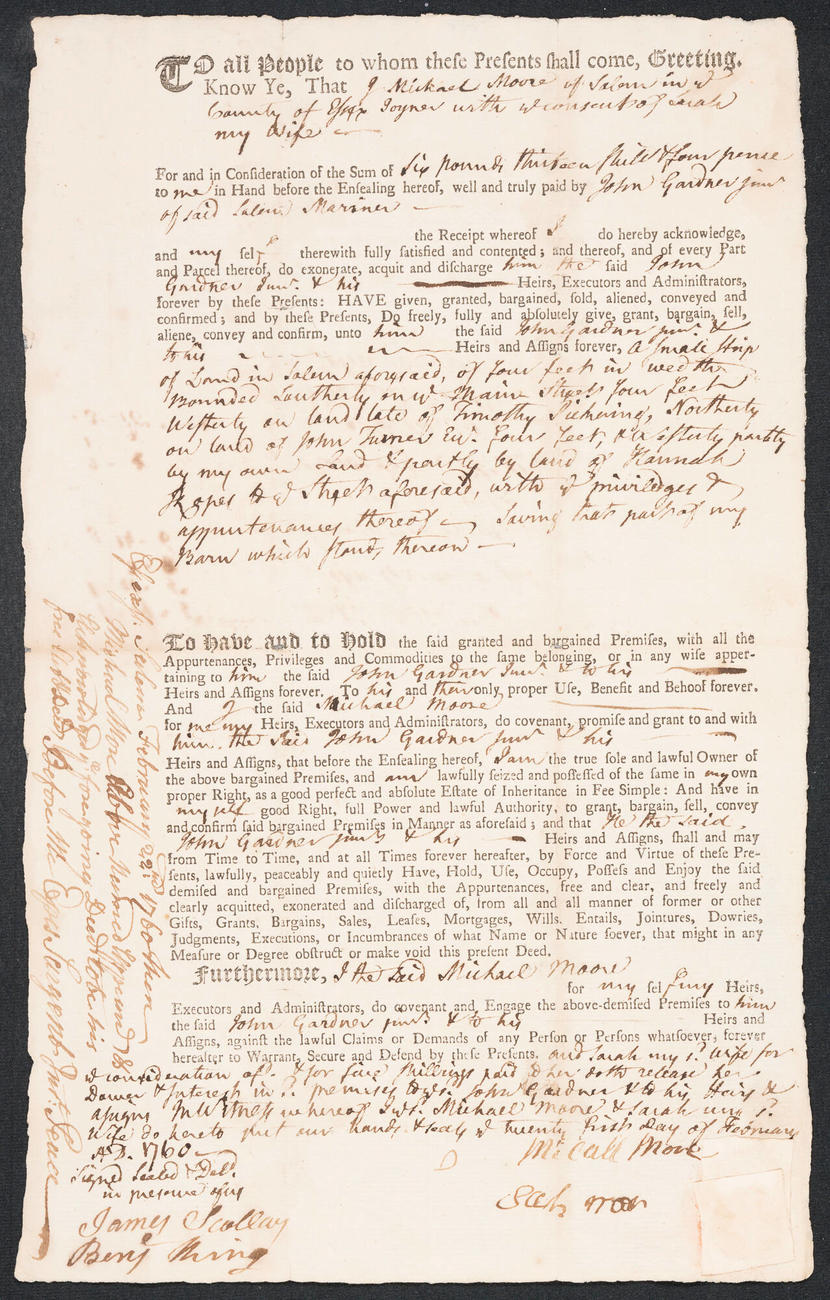 TO all People to whom these Presents shall come, Greeting.
Know Ye, That I Michael Moore of Salem in ye
County of Essex Joyner with ye consent of Sarah
my wife
For and in Consideration of the Sum of Six pounds thirteen shills & four pence
to me in Hand before the Ensealing hereof, well and truly paid by John Gardner junr
of said Salem Mariner
the Receipt whereof I do hereby acknowledge,
and my self therewith fully satisfied and contented; and thereof, and of every Part
and Parcel thereof, do exonerate, acquit and discharge him the said John
Gardner Junr. & his Heirs, Executors and Administrators,
forever by these Presents: HAVE given, granted, bargained, sold, aliened, conveyed and
confirmed; and by these Presents, Do freely, fully and absolutely give, grant, bargain, sell,
aliene, convey and confirm, unto him the said John Gardner junr. &
to his Heirs and Assigns forever, a small strip
of Land in Salem aforesaid, of four feet in wedth
Bounded Southerly on ye Main Street four feet
Westerly on land late of Timothy Pickering, Northerly
on land of John Turner Esqr. four feet, & Easterly partly
by my own Land & partly by land of Hannah
Ropes to ye Street aforesaid, with ye priviledges &
appurtenances thereof Saving that part of my
Barn which stands thereon
To have and to hold the said granted and bargained Premises, with all the
Appurtenances, Privileges and Commodities to the same belonging, or in any wise apper-
taining to him the said John Gardner Junr. & to his
Heirs and Assigns forever. To his and their only, proper Use, Benefit and Behoof forever.
And I the said Michael Moore
for me my Heirs, Executors and Administrators, do covenant, promise and grant to and with
him the said John Gardner junr & his
Heirs and Assigns, that before the Ensealing hereof, I am the true sole and lawful Owner of
the above bargained Premises, and am lawfully seized and possessed of the same in my own
proper Right, as a good perfect and absolute Estate of Inheritance in Fee Simple: And have in
my self good Right, full Power and lawful Authority, to grant, bargain, sell, convey
and confirm said bargained Premises in Manner as aforesaid; and that He the said
John Gardner junr. & his Heirs and Assigns, shall and may
from Time to Time, and at all Times forever hereafter, by Force and Virtue of these Pre-
sents, lawfully, peaceably and quietly Have, Hold, Use, Occupy, Possess and Enjoy the said
demised and bargained Premises, with the Appurtenances, free and clear, and freely and
clearly acquitted, exonerated and discharged of, from all and all manner of former or other
Gifts, Grants, Bargains, Sales, Leases, Mortgages, Wills, Entails, Jointures, Dowries,
Judgments, Executions, or Incumbrances of what Name or Nature soever, that might in any
Measure or Degree obstruct or make void this present Deed.
Furthermore, I the said Michael Moore
for my self my Heirs,
Executors and Administrators, do covenant and Engage the above-demised Premises to him
the said John Gardner junr. & to his Heirs and
Assigns, against the lawful Claims or Demands of any Person or Persons whatsoever, forever
hereafter to Warrant, Secure and Defend by these Presents. and Sarah my sd. wife for
ye consideration afsd. & for five shillings paid to her doth release her
Dower & Interest in sd. premises to ye sd. John Gardner & to his Heirs &
assigns In Witness whereof I ye sd. Michael Moore & Sarah my sd.
wife do hereto put our hands & seals ye twenty first Day of February
A.D. 1760
Signed Sealed & Deld.
in presence of us
Micall More
James Scollay
Benj King
Essex ss. Salem February 22nd. 1760 then
Michael More above Named Appeared &
Acknowledged ye foregoing Deed to be his
free Act & Deed Before Me Epes Sargent Just. Peace